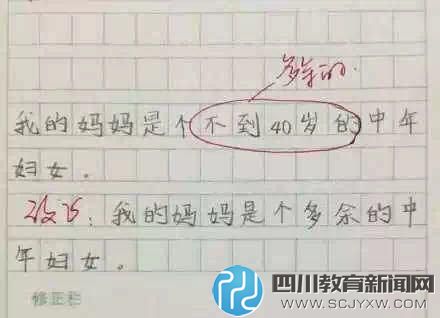 多余的.
我的妈妈是个不到40岁的中年
妇女。
改正：我的妈妈是个多余的中
年妇女。
修正栏
四川教育新闻网
WWW.SCJYXW.COM